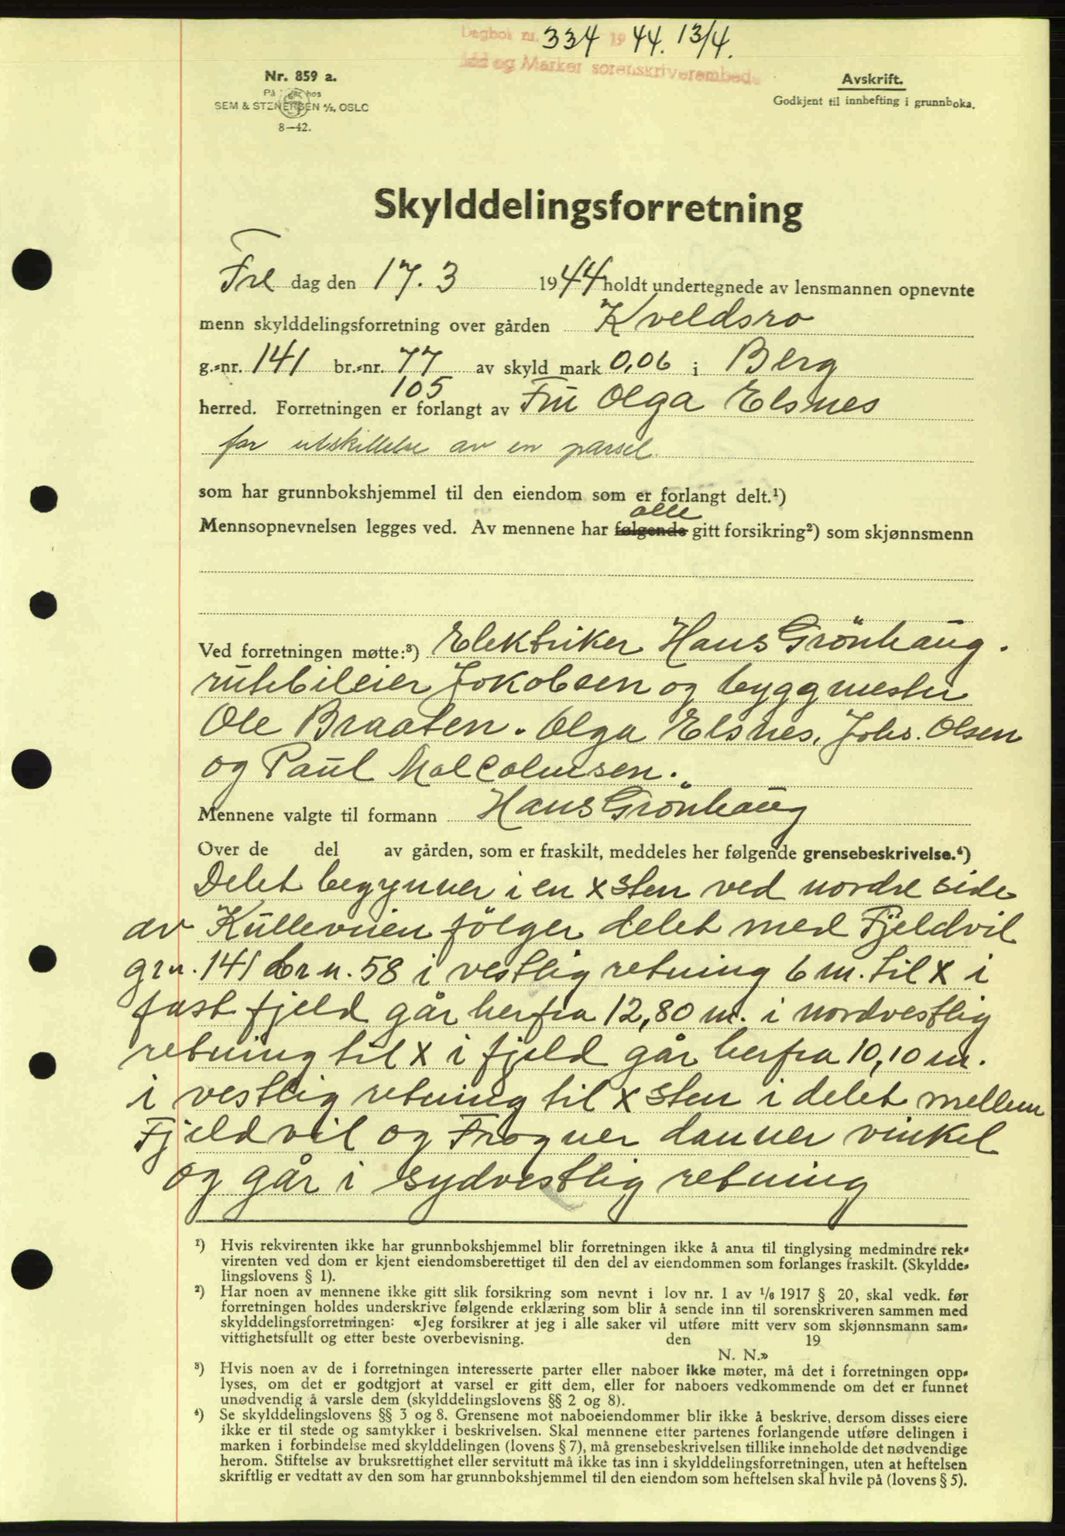 Dagbok nr. 334 1944. 13/4.
Idd og Marker sorenskriverembede
Nr. 859 a.
På hos
SEM & STENERSEN A/S, OSLO
8—42.
Avskrift.
Godkjent til innhefting i grunnboka.
Skylddelingsforretning
Fre dag den 17. 3 1944 holdt undertegnede av lensmannen opnevnte
menn skylddelingsforretning over gården Kveldsro
g.-nr. 141 br.-nr. 77 av skyld mark 0,06 i Berg
105
herred. Forretningen er forlangt av Fru Olga Elsnes
for utskillelse av en parsel.
som har grunnbokshjemmel til den eiendom som er forlangt delt.¹)
alle
Mennsopnevnelsen legges ved. Av mennene har følgende gitt forsikring²) som skjønnsmenn
Ved forretningen møtte:³) Elektriker Hans Grönhaug.
rutebileier Jokobsen og byggmester
Ole Braaten. Olga Elsnes, Johs. Olsen
og Paul Malcolmsen.
Mennene valgte til formann Hans Grönhaug
Over de del av gården, som er fraskilt, meddeles her følgende grensebeskrivelse.⁴)
Delet begynner i en x sten ved nordre side
av Kulleveien følger delet med Fjeldvil
grn. 141 brn. 58 i vestlig retning 6 m. til x i
fast fjeld går herfra 12,80 m. i nordvestlig
retning til x i fjeld går herfra 10,10 m.
i vestlig retning til x sten i delet mellem
Fjeldvil og Frogner danner vinkel
og går i sydvestlig retning
¹) Hvis rekvirenten ikke har grunnbokshjemmel blir forretningen ikke å anta til tinglysing medmindre rek-
virenten ved dom er kjent eiendomsberettiget til den del av eiendommen som forlanges fraskilt. (Skyldde-
lingslovens § 1).
²) Har noen av mennene ikke gitt slik forsikring som nevnt i lov nr. 1 av 1/6 1917 § 20, skal vedk. før
forretningen holdes underskrive følgende erklæring som blir å sende inn til sorenskriveren sammen med
skylddelingsforretningen: «Jeg forsikrer at jeg i alle saker vil utføre mitt verv som skjønnsmann sam-
vittighetsfullt og etter beste overbevisning. den 19
N. N.»
³) Hvis noen av de i forretningen interesserte parter eller naboer ikke møter, må det i forretningen opp-
lyses, om det er godtgjort at varsel er gitt dem, eller for naboers vedkommende om det er funnet
unødvendig å varsle dem (skylddelingslovens §§ 2 og 8).
⁴) Se skylddelingslovens §§ 3 og 8. Grensene mot naboeiendommer blir ikke å beskrive, dersom disses eiere
ikke er til stede og samtykker i beskrivelsen. Skal mennene etter partenes forlangende utføre delingen i
marken i forbindelse med skylddelingen (lovens § 7), må grensebeskrivelsen tillike inneholde det nødvendige
herom. Stiftelse av bruksrettighet eller servitutt må ikke tas inn i skylddelingsforretningen, uten at heftelsen
skriftlig er vedtatt av den som har grunnbokshjemmel til den eiendom som heftelsen skal hvile på (lovens § 5).